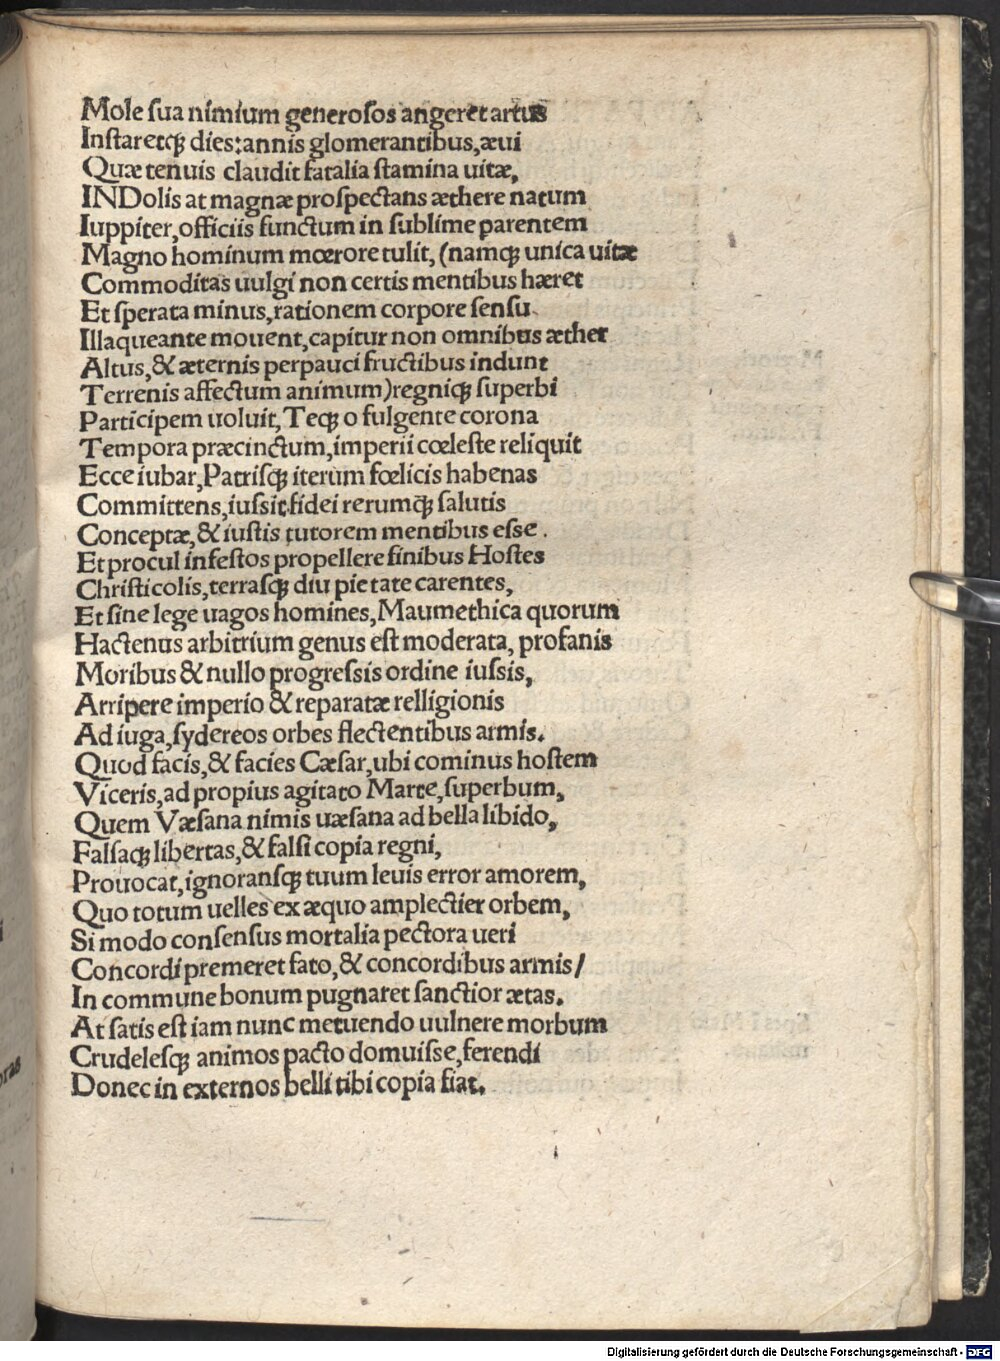 Mole ſua nimium generoſos angeret artus
Inſtaretq; dies: annis glomerantibus, æui
Quæ tenuis claudit fatalia ſtamina uitæ,
INDolis at magnæ proſpectans æthere natum
Iuppiter, officiis functum in ſublime parentem
Magno hominum mœrore tulit, (namq; unica uitæ
Commoditas uulgi non certis mentibus hæret
Et ſperata minus, rationem corpore ſenſu
Illaqueante mouent, capitur non omnibus æther
Altus, & æternis perpauci fructibus indunt
Terrenis affectum animum) regniq; ſuperbi
Participem uoluit, Teq; o fulgente corona
Tempora præcinctum, imperii cœleſte reliquit
Ecce iubar, Patriſq; iterum fœlicis habenas
Committens, iuſsit fidei rerumq; ſalutis
Conceptæ, & iuſtis tutorem mentibus eſse.
Et procul infeſtos propellere finibus Hoſtes
Chriſticolis, terraſq; diu pietate carentes,
Et ſine lege uagos homines, Maumethica quorum
Hactenus arbitrium genus eſt moderata, profanis
Moribus & nullo progreſsis ordine iuſsis,
Arripere imperio & reparatæ relligionis
Ad iuga, ſydereos orbes flectentibus armis.
Quod facis, & facies Cæſar, ubi cominus hoſtem
Viceris, ad propius agitato Marte, ſuperbum,
Quem Væſana nimis uæſana ad bella libido,
Falſaq; libertas, & falſi copia regni,
Prouocat, ignoranſq; tuum leuis error amorem,
Quo totum uelles ex æquo amplectier orbem,
Si modo conſenſus mortalia pectora ueri
Concordi premeret fato, & concordibus armis/
In commune bonum pugnaret ſanctior ætas.
At ſatis eſt iam nunc metuendo uulnere morbum
Crudeleſq; animos pacto domuiſse, ferendi
Donec in externos belli tibi copia fiat.
Digitalisierung gefördert durch die Deutsche Forschungsgemeinschaft - DFG